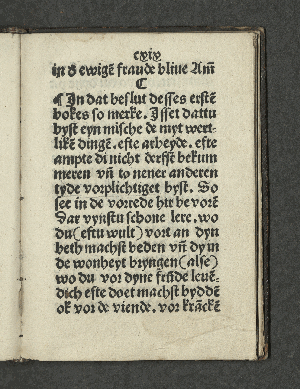 cxix
in d̕ ewigē fraude bliue Am̄
C
¶ In dat beslut desses erstē
bokes so merke. Isset dattu
byst eyn mische de myt wert-
likē dingē. efte arbeyde. efte
ampte di nicht derfst bekum
meren vn̄ to nener anderen
tyde vorplichtiget byst. So
see in de vorrede hir bevorē
Dar vynstu schone lere. wo
du (eftu wult) vort an dyn
beth machst beden vn̄ dy in
de wonheyt bryngen (alse)
wo du vor dyne frūde leuē-
dich efte doet machst byddē
ok vor de viende. vor krāckē